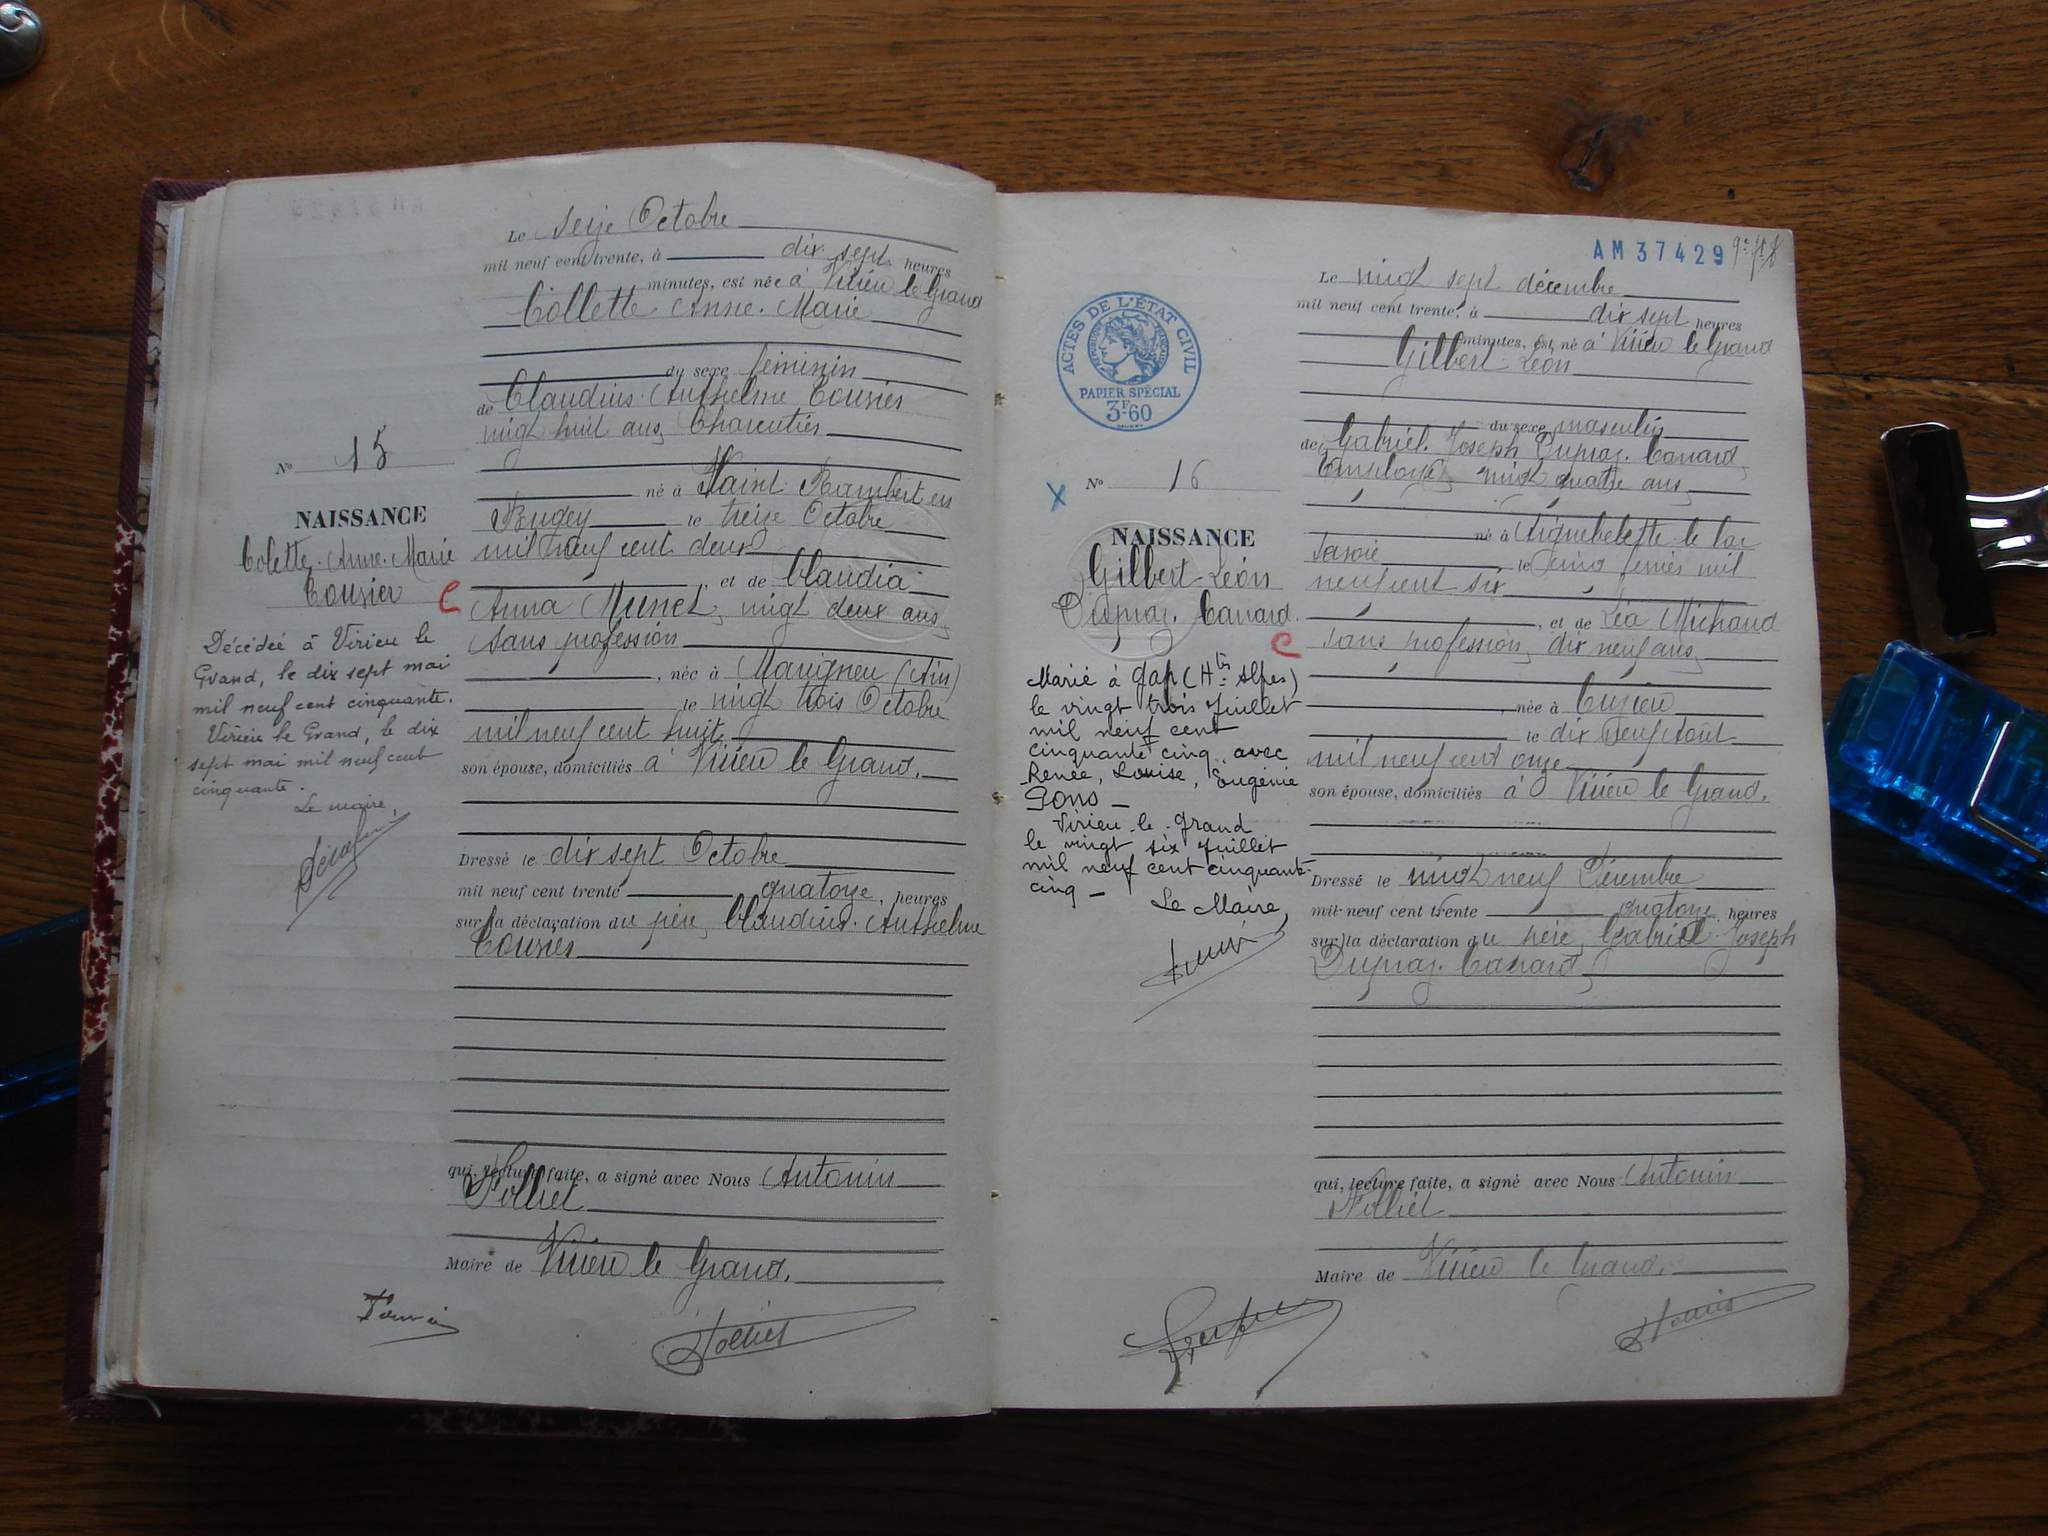 Le seize Octobre
mil neuf cent trente, à dix sept heures
minutes, est née à Virieu le Grand
Collette Anne. Marie
du sexe féminin
de Claudius. Anthelme Tousier
vingt huit ans, Charcutier
né à Saint Rambert en
Bugey le treize Octobre
mil neuf cent deux
, et de Claudia
Anna Meunet, vingt deux ans,
sans profession
, née à Marigneu (Ain)
le vingt trois Octobre
mil neuf cent huit
son épouse, domiciliés à Virieu le Grand.
Dressé le dix sept Octobre
mil neuf cent trente quatorze, heures
sur la déclaration du père, Claudius. Anthelme
Tousier
qui, lecture faite, a signé avec Nous Antonin
Maire de Virieu le Grand.
No 15
NAISSANCE
Colette. Anne. Marie
Tousier
C
Décédée à Virieu le
Grand, le dix sept mai
mil neuf cent cinquante.
Virieu le Grand, le dix
sept mai mil neuf cent
cinquante.
Le maire,
AM37429
Le vingt sept décembre
mil neuf cent trente, à dix sept heures
minutes, est né à Virieu le Grand
Gilbert Léon
du sexe masculin
de Gabriel. Joseph Dupraz. Canard,
Employé, vingt quatre ans,
né à Aiguebelette le lac
Savoie le cinq février mil
neuf cent six
, et de Léa Michaud
sans profession, dix neuf ans,
, née à Cuzieu
le dix neuf Août
mil neuf cent onze
son épouse, domiciliés à Virieu le Grand.
Dressé le vingt neuf Décembre
mil neuf cent trente quatorze heures
sur la déclaration du père, Gabriel Joseph
Dupraz. Canard,
qui, lecture faite, a signé avec Nous Antonin
Maire de Virieu le Grand.
ACTES DE L'ÉTAT CIVIL
RÉPUBLIQUE FRANÇAISE
PAPIER SPÉCIAL
3F.60
X
No 16
NAISSANCE
Gilbert Léon
Dupraz. Canard.
C
Marié à Gap (Htes Alpes)
le vingt trois Juillet
mil neuf cent
cinquante cinq avec
Renée, Louise, Eugénie
Pons –
Virieu-le-Grand
le vingt six Juillet
mil neuf cent cinquante-
cinq –
Le Maire,